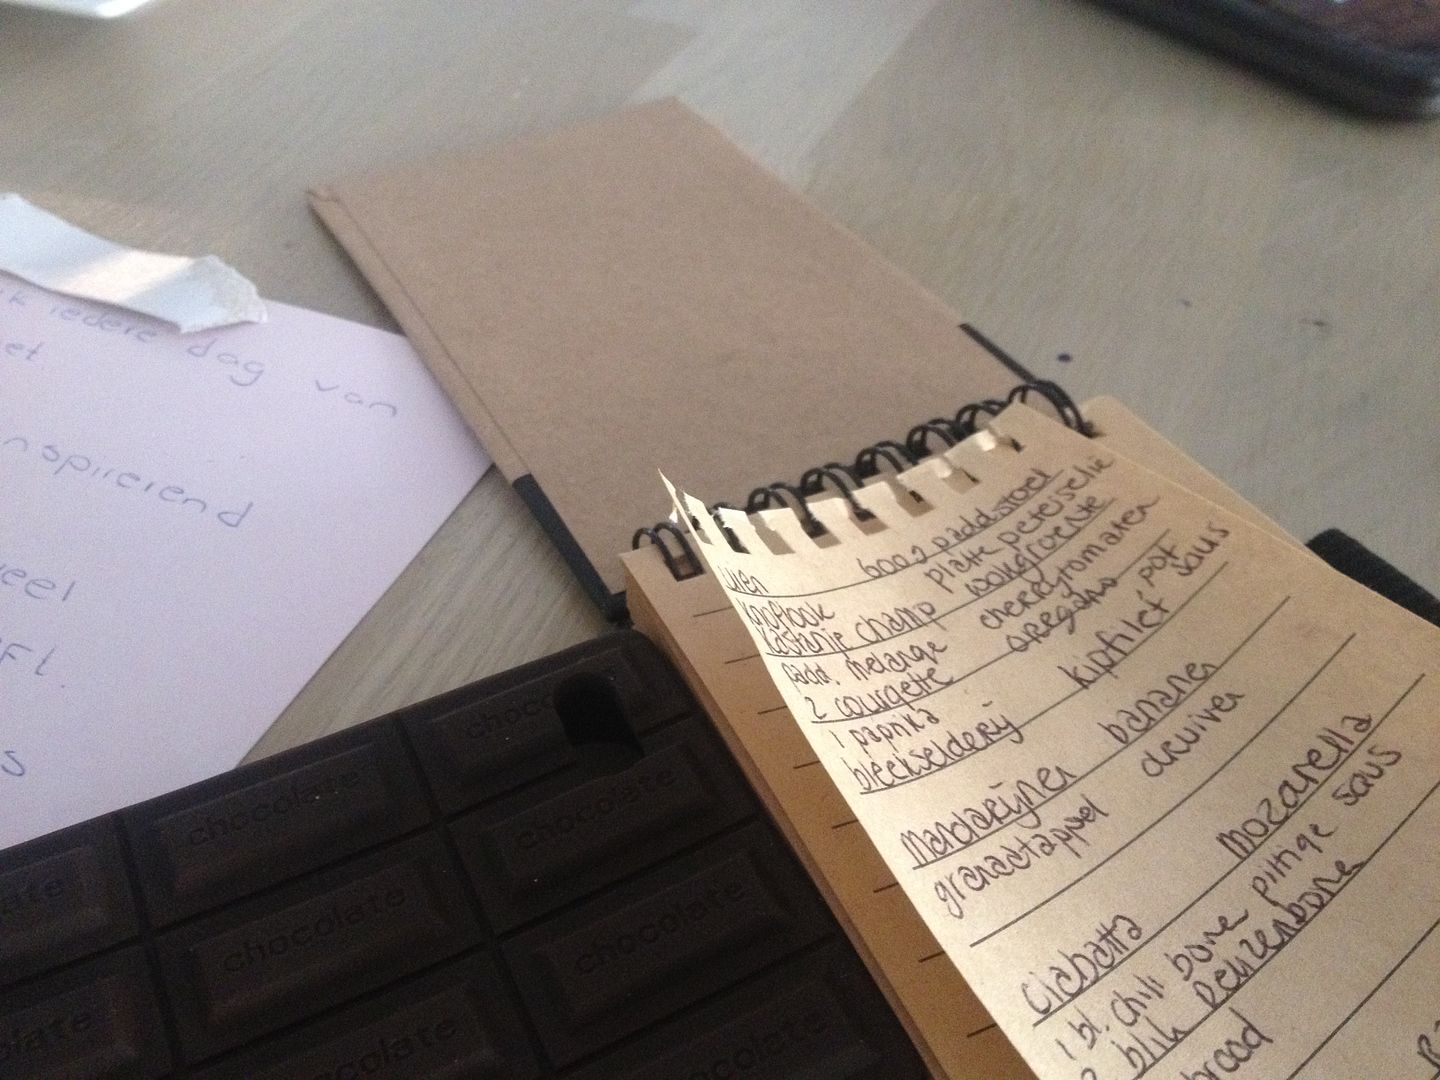 iedere dag van
et
nspirerend
eel
ft.
s
chocolate
chocolate
chocolate
chocolate
chocolate
uien 600g padd.stoel
knoflook platte peterselie
kastanje champ wokgroente
padd. melange cherrytomaten
2 courgette oregano, pot
1 paprika saus
bleekselderij kipfilet
Mandarijnen bananen
granaatappel druiven
Ciabatta Mozarella
1 bl. chili bone pittige saus
2 blik Reuzenbone
brood